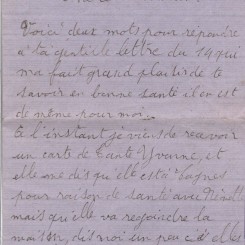 Voici deux mots pour répondre
a ta gentille lettre du 14 qui
ma fait grand plaisir de te
savoir en bonne santé il en est
de même pour moi.
A l'instant je viens de recevoir
un carte de Tante Yvonne, et
elle me dis qu'elle est a
pour raison de santé avec
mais qu'elle va rejoindre la
maison, dis moi un peu si elle